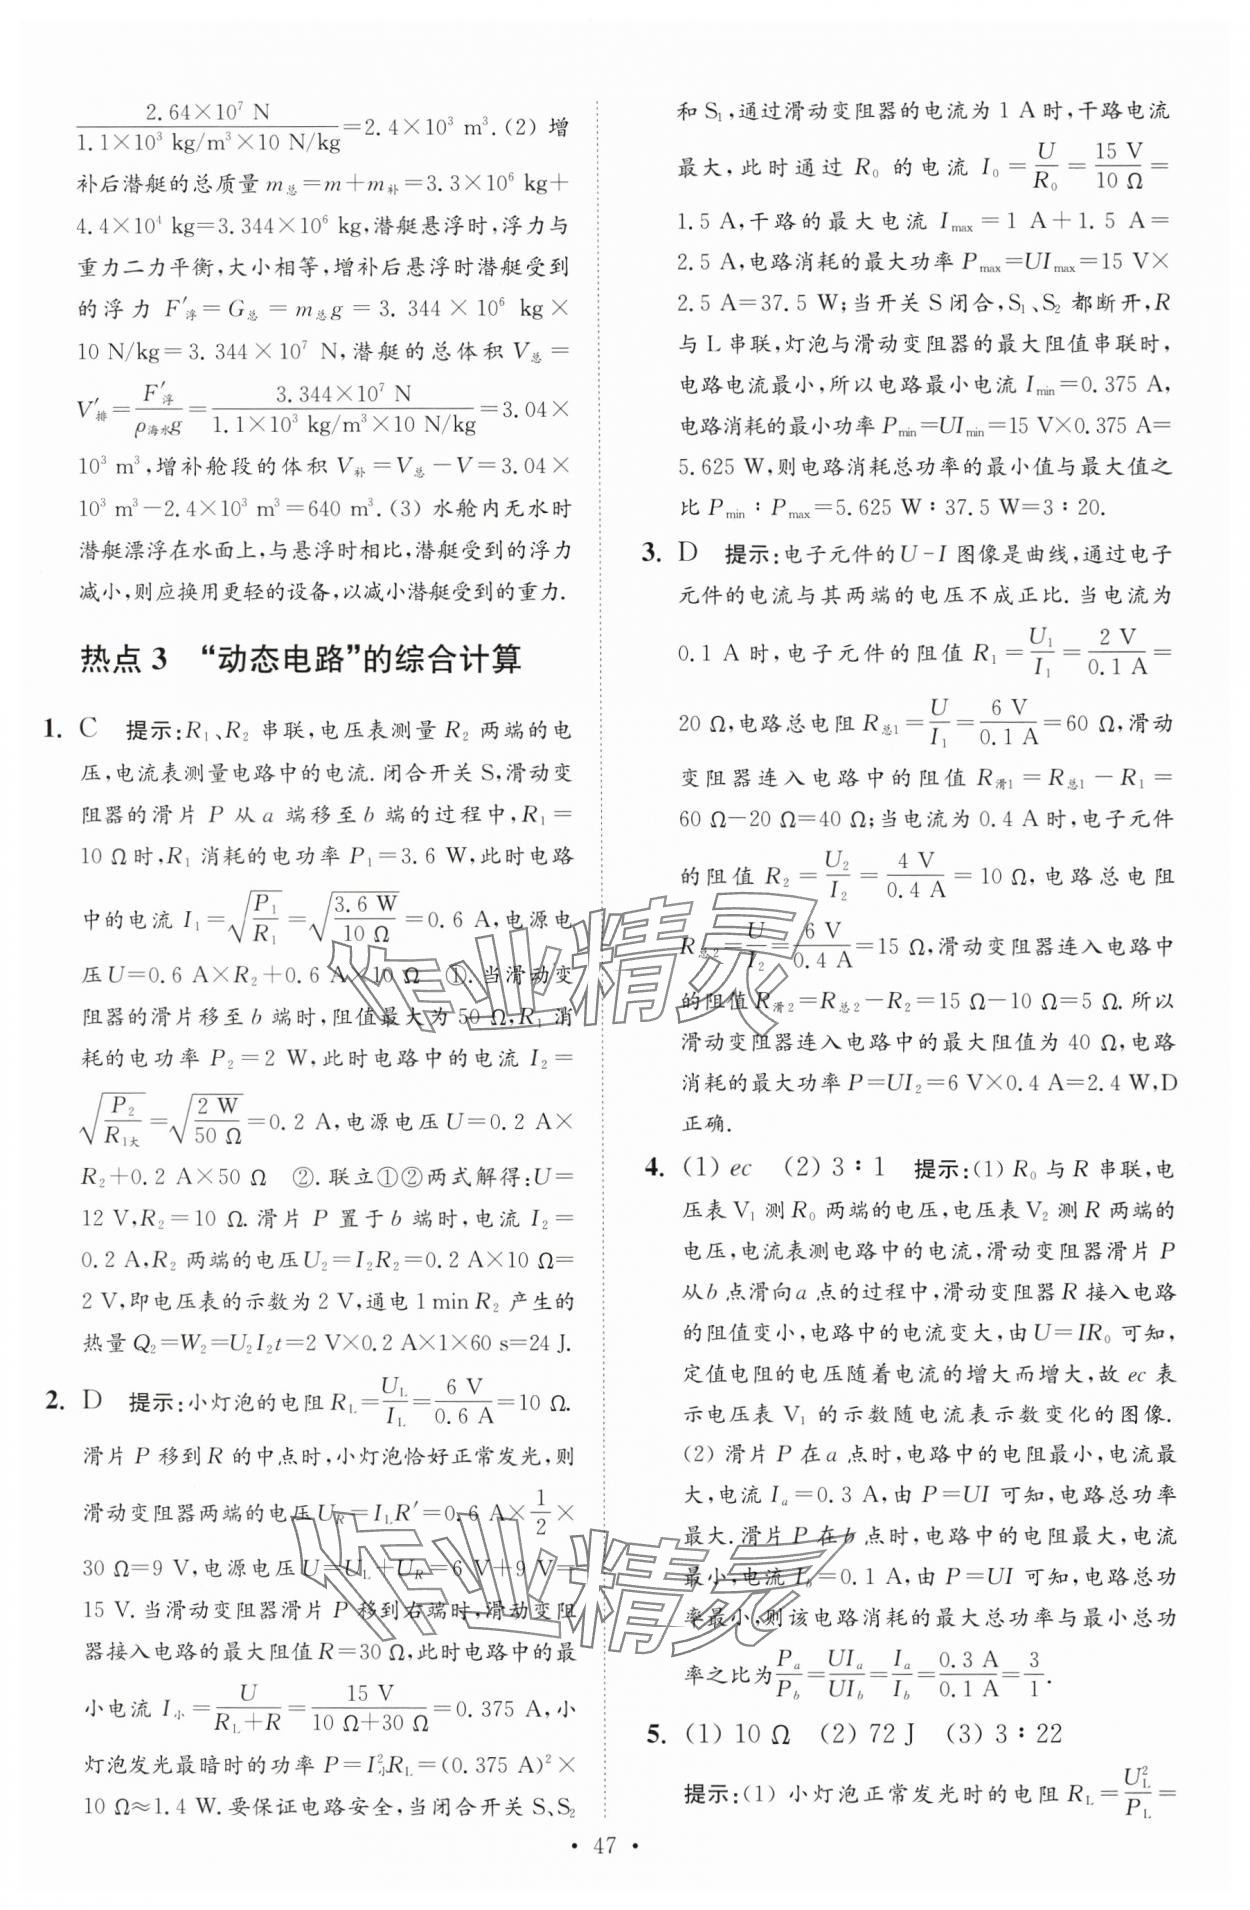 2.64×10⁷ N / 1.1×10³ kg/m³×10 N/kg =2.4×10³ m³.(2) 增
补后潜艇的总质量 m总=m+m补=3.3×10⁶ kg+
4.4×10⁴ kg=3.344×10⁶ kg,潜艇悬浮时,浮力与
重力二力平衡,大小相等,增补后悬浮时潜艇受到
的浮力 F′浮=G总=m总g=3.344×10⁶ kg×
10 N/kg=3.344×10⁷ N,潜艇的总体积 V总=
V′排=F′浮/ρ海水g=3.344×10⁷ N / 1.1×10³ kg/m³×10 N/kg=3.04×
10³ m³,增补舱段的体积 V补=V总-V=3.04×
10³ m³-2.4×10³ m³=640 m³.(3) 水舱内无水时
潜艇漂浮在水面上,与悬浮时相比,潜艇受到的浮力
减小,则应换用更轻的设备,以减小潜艇受到的重力.
热点 3 “动态电路”的综合计算
1. C 提示:R₁、R₂ 串联,电压表测量 R₂ 两端的电
压,电流表测量电路中的电流.闭合开关 S,滑动变
阻器的滑片 P 从 a 端移至 b 端的过程中,R₁=
10 Ω时,R₁ 消耗的电功率 P₁=3.6 W,此时电路
中的电流 I₁=√(P₁/R₁)=√(3.6 W/10 Ω)=0.6 A,电源电
压U=0.6 A×R₂+0.6 A×10 Ω ①.当滑动变
阻器的滑片移至 b 端时,阻值最大为 50 Ω,R₁ 消
耗的电功率 P₂=2 W,此时电路中的电流 I₂=
√(P₂/R₁大)=√(2 W/50 Ω)=0.2 A,电源电压U=0.2 A×
R₂+0.2 A×50 Ω ②.联立①②两式解得:U=
12 V,R₂=10 Ω.滑片 P 置于 b 端时,电流 I₂=
0.2 A,R₂ 两端的电压U₂=I₂R₂=0.2 A×10 Ω=
2 V,即电压表的示数为 2 V,通电 1 min R₂ 产生的
热量 Q₂=W₂=U₂I₂t=2 V×0.2 A×1×60 s=24 J.
2. D 提示:小灯泡的电阻 R_L=U_L/I_L=6 V/0.6 A=10 Ω.
滑片 P 移到 R 的中点时,小灯泡恰好正常发光,则
滑动变阻器两端的电压U_R=I_LR′=0.6 A×1/2×
30 Ω=9 V,电源电压U=U_L+U_R=6 V+9 V=
15 V.当滑动变阻器滑片 P 移到右端时,滑动变阻
器接入电路的最大阻值R=30 Ω,此时电路中的最
小电流 I小=U/(R_L+R)=15 V/(10 Ω+30 Ω)=0.375 A,小
灯泡发光最暗时的功率 P=I²小R_L=(0.375 A)²×
10 Ω≈1.4 W.要保证电路安全,当闭合开关 S、S₂
和 S₁,通过滑动变阻器的电流为 1 A 时,干路电流
最大,此时通过 R₀ 的电流 I₀=U/R₀=15 V/10 Ω=
1.5 A,干路的最大电流 I_max=1 A+1.5 A=
2.5 A,电路消耗的最大功率 P_max=UI_max=15 V×
2.5 A=37.5 W;当开关 S 闭合,S₁、S₂ 都断开,R
与 L 串联,灯泡与滑动变阻器的最大阻值串联时,
电路电流最小,所以电路最小电流 I_min=0.375 A,
电路消耗的最小功率 P_min=UI_min=15 V×0.375 A=
5.625 W,则电路消耗总功率的最小值与最大值之
比 P_min∶P_max=5.625 W∶37.5 W=3∶20.
3. D 提示:电子元件的 U-I 图像是曲线,通过电子
元件的电流与其两端的电压不成正比.当电流为
0.1 A 时,电子元件的阻值 R₁=U₁/I₁=2 V/0.1 A=
20 Ω,电路总电阻 R总1=U/I₁=6 V/0.1 A=60 Ω,滑动
变阻器连入电路中的阻值 R滑1=R总1-R₁=
60 Ω-20 Ω=40 Ω;当电流为 0.4 A 时,电子元件
的阻值 R₂=U₂/I₂=4 V/0.4 A=10 Ω,电路总电阻
R总2=U/I₂=6 V/0.4 A=15 Ω,滑动变阻器连入电路中
的阻值 R滑2=R总2-R₂=15 Ω-10 Ω=5 Ω.所以
滑动变阻器连入电路中的最大阻值为 40 Ω,电路
消耗的最大功率 P=UI₂=6 V×0.4 A=2.4 W,D
正确.
4. (1) ec (2) 3∶1 提示:(1) R₀ 与 R 串联,电
压表 V₁ 测 R₀ 两端的电压,电压表 V₂ 测 R 两端的
电压,电流表测电路中的电流,滑动变阻器滑片 P
从 b 点滑向 a 点的过程中,滑动变阻器 R 接入电路
的阻值变小,电路中的电流变大,由 U=IR₀ 可知,
定值电阻的电压随着电流的增大而增大,故 ec 表
示电压表 V₁ 的示数随电流表示数变化的图像.
(2) 滑片 P 在 a 点时,电路中的电阻最小,电流最
大,电流 I_a=0.3 A,由 P=UI 可知,电路总功率
最大.滑片 P 在 b 点时,电路中的电阻最大,电流
最小,电流 I_b=0.1 A,由 P=UI 可知,电路总功
率最小,则该电路消耗的最大总功率与最小总功
率之比为 P_a/P_b=UI_a/UI_b=I_a/I_b=0.3 A/0.1 A=3/1.
5. (1) 10 Ω (2) 72 J (3) 3∶22
提示:(1) 小灯泡正常发光时的电阻 R_L=U²_L/P_L=
作业精灵
作业精灵
· 47 ·